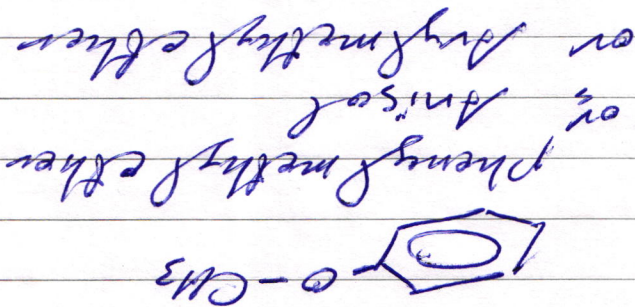 O-CH3
phenyl methyl ether
or, Anisol
or Aryl methyl ether